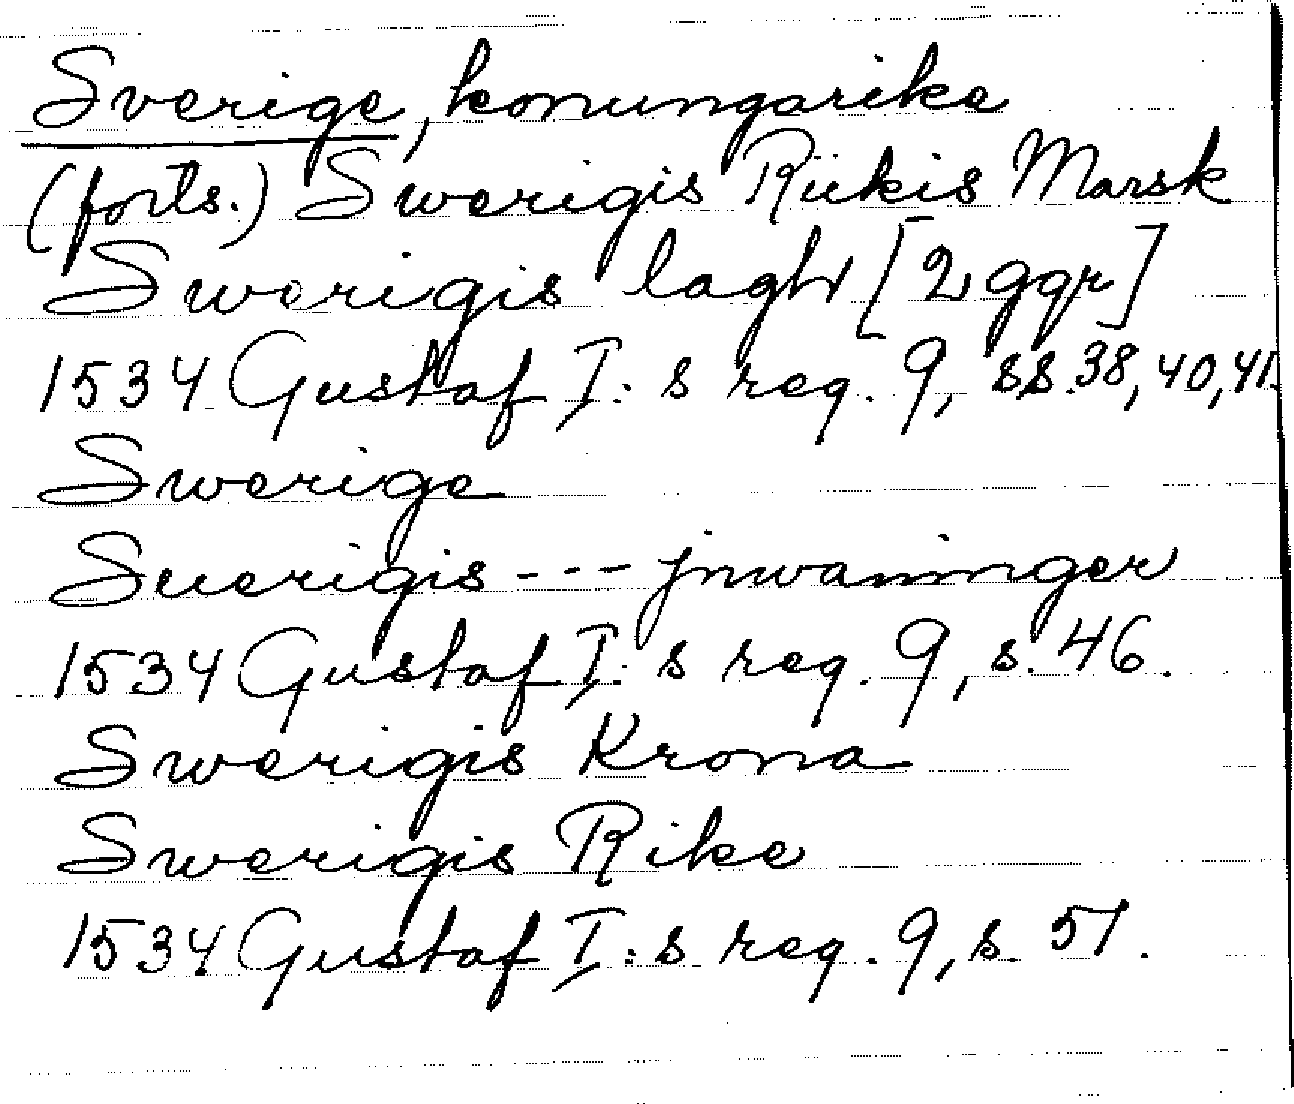 Sverige, konungarike
(forts.) Swerigis Riikis Marsk
Swerigis lagh [2 ggr]
1534 Gustaf I:s reg. 9, ss. 38, 40, 41.
Swerige
Suerigis --- jnwaninger
1534 Gustaf I:s reg. 9, s. 46.
Swerigis Krona
Swerigis Rike
1534 Gustaf I:s reg. 9, s. 51.